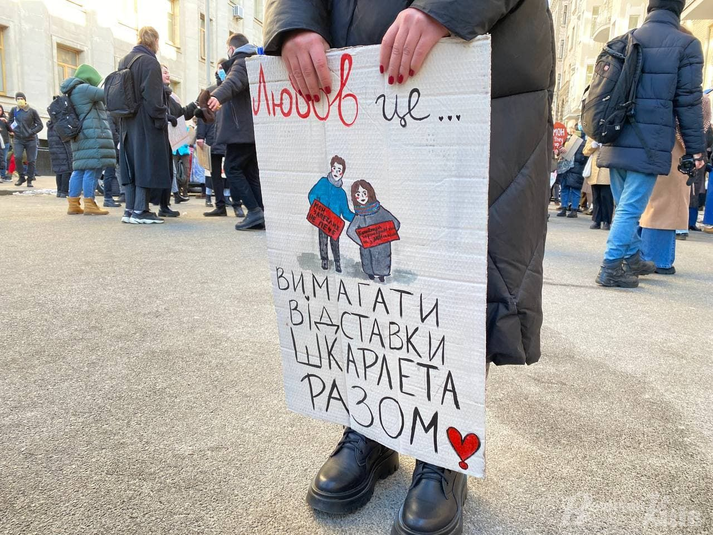 Любов це...
ВИМАГАТИ
ВІДСТАВКИ
ШКАРЛЕТА
РАЗОМ
МОН